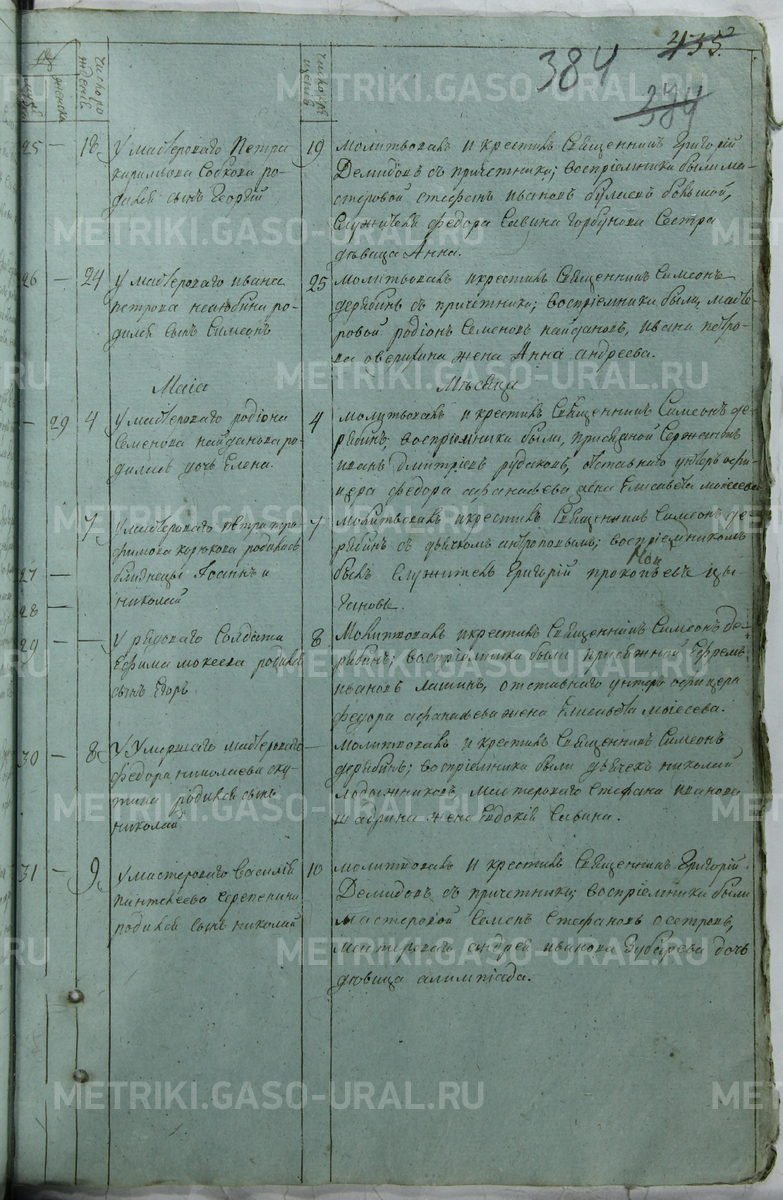 455
384
384
число рождений
женска
число крещений
25 — 18 У мастероваго Петра
Кирилова Бобкова ро-
дился сынъ Георгий
19 молитвовалъ и крестилъ Священникъ Григорий
Демидовъ съ причетники; восприемники были ма-
стеровой Стефанъ Ивановъ большой,
служителя Федора Савина Горбунова сестра
девица Анна.
26 — 24 У мастероваго Ивана
Петрова ро-
дился сынъ Симеонъ
25 молитвовалъ и крестилъ Священникъ Симеонъ
Дерябинъ съ причетники; восприемники были, масте-
ровой Родионъ Семеновъ Найдановъ, Ивана Петро-
ва Аверихина жена Анна Андреева.
Маiа
Месяца
— 29 4 У мастероваго Родиона
Семенова Найданова ро-
дилась дочь Елена.
4 молитвовалъ и крестилъ Священникъ Симеонъ Де-
рябинъ, восприемники были,
Иванъ Дмитриевъ Рудаковъ, отставнаго унтеръ офи-
цера Федора Афанасьева жена Елисавета Моисеева
7 У мастероваго Петра Тро-
фимова Корюкова родились
27 — близнецы Iоаннъ и
28 — Николай
7 молитвовалъ и крестилъ Священникъ Симеонъ Де-
рябинъ съ дьячкомъ Антроповымъ; восприемникомъ
былъ служитель Григорий Прокопьевъ Цы-
гановъ.
29 — — У рядоваго солдата
Ефима Мокеева родился
сынъ Егоръ
8 Молитвовалъ и крестилъ Священникъ Симеонъ Де-
рябинъ; восприемники были Ефремъ
Ивановъ Лашинъ, отставнаго унтеръ офицера
Федора Афанасьева жена Елисавета Моисеева.
30 — 8 У умершаго мастероваго
Федора Николаева Ску-
тина родился сынъ
Николай
— молитвовалъ и крестилъ Священникъ Симеонъ
Дерябинъ; восприемники были дьячекъ Николай
мастероваго Стефана Иванова
Шабрина жена Евдокия Савина.
31 — 9 У мастероваго Василия
Пантелеева Черепенина
родился сынъ Николай
10 молитвовалъ и крестилъ Священникъ Григорий
Демидовъ съ причетники; восприемники были
мастеровой Семенъ Стефановъ Осетровъ,
мастероваго Андрея Иванова Зубарева дочь
девица Алимпiада.
METRIKI.GASO-URAL.RU